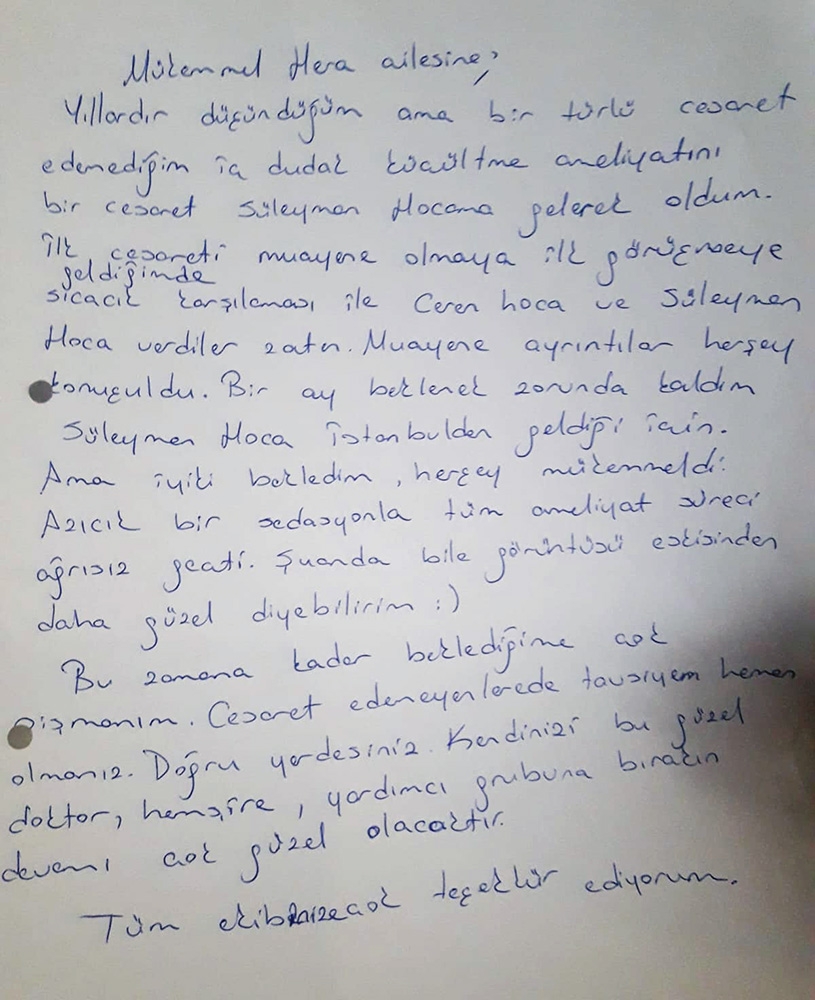 Mükemmel Hera ailesine;
Yıllardır düşündüğüm ama bir türlü cesaret
edemediğim iç dudak küçültme ameliyatını
bir cesaret Süleyman Hocama gelerek oldum.
İlk cesareti muayene olmaya ilk görüşmeye
geldiğimde
sıcacık karşılaması ile Ceren hoca ve Süleyman
Hoca verdiler zaten. Muayene ayrıntılar herşey
konuşuldu. Bir ay beklemek zorunda kaldım
Süleyman Hoca İstanbuldan geldiği için.
Ama iyiki bekledim, herşey mükemmeldi.
Azıcık bir sedasyonla tüm ameliyat süreci
ağrısız geçti. Şuanda bile görüntüsü eskisinden
daha güzel diyebilirim :)
Bu zamana kadar beklediğime çok
pişmanım. Cesaret edemeyenlerede tavsiyem hemen
olmanız. Doğru yerdesiniz. Kendinizi bu güzel
doktor, hemşire, yardımcı grubuna bırakın
devamı çok güzel olacaktır.
Tüm ekibinize çok teşekkür ediyorum.